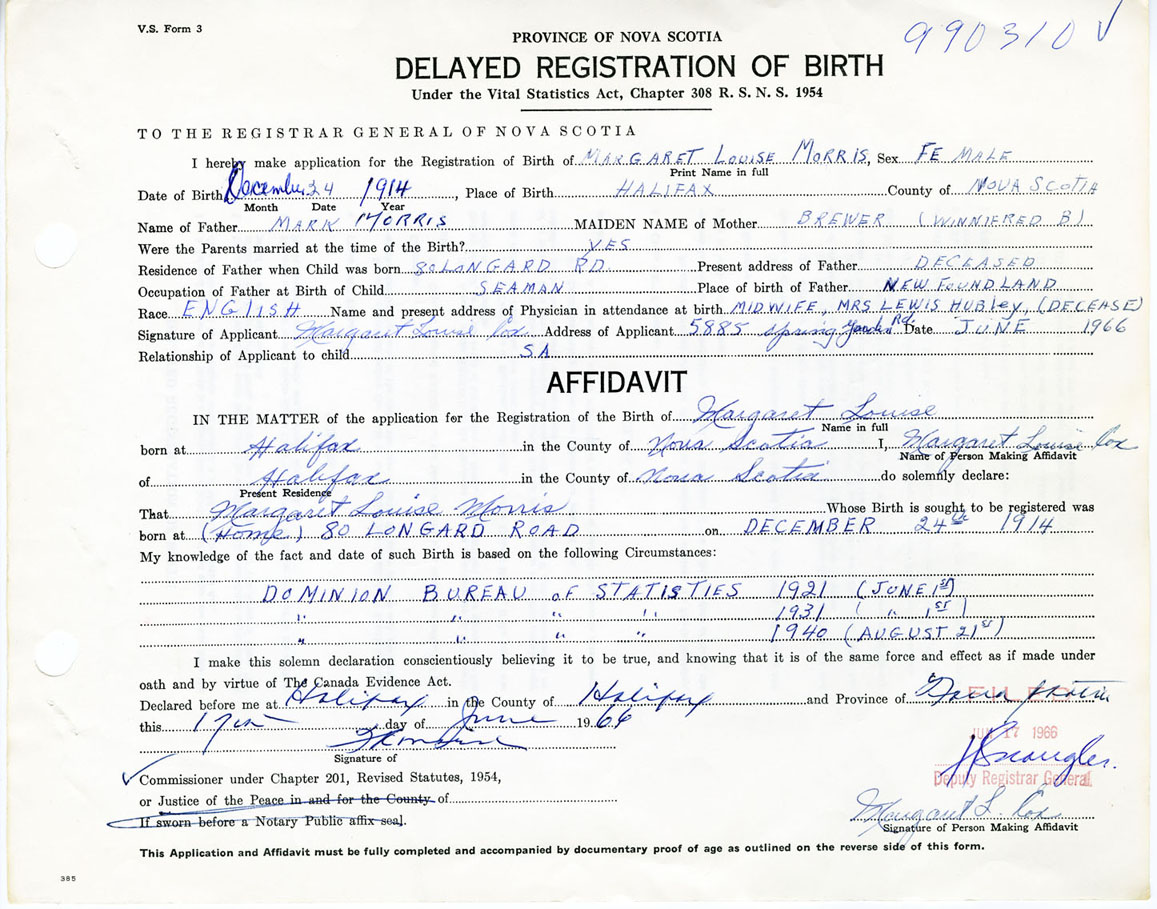 V.S. Form 3
990310 ✓
PROVINCE OF NOVA SCOTIA
DELAYED REGISTRATION OF BIRTH
Under the Vital Statistics Act, Chapter 308 R. S. N. S. 1954
TO THE REGISTRAR GENERAL OF NOVA SCOTIA
I hereby make application for the Registration of Birth of MARGARET LOUISE MORRIS, Sex FEMALE
Print Name in full
Date of Birth December 24 1914, Place of Birth HALIFAX County of NOVA SCOTIA
Month Date Year
Name of Father MARK MORRIS MAIDEN NAME of Mother BREWER (WINNIERED B)
Were the Parents married at the time of the Birth? YES
Residence of Father when Child was born 80 LONGARD RD. Present address of Father DECEASED
Occupation of Father at Birth of Child SEAMAN Place of birth of Father NEWFOUNDLAND
Race ENGLISH Name and present address of Physician in attendance at birth MIDWIFE, MRS LEWIS HUBLEY, (DECEASE)
Signature of Applicant Margaret Louise Cox Address of Applicant 5885 Spring Garden Rd. Date JUNE 1966
Relationship of Applicant to child SA
AFFIDAVIT
IN THE MATTER of the application for the Registration of the Birth of Margaret Louise
Name in full
born at Halifax in the County of Nova Scotia I, Margaret Louise Cox
Name of Person Making Affidavit
of Halifax in the County of Nova Scotia do solemnly declare:
Present Residence
That Margaret Louise Morris Whose Birth is sought to be registered was
born at (Home) 80 LONGARD ROAD on DECEMBER 24th 1914
My knowledge of the fact and date of such Birth is based on the following Circumstances:
DOMINION BUREAU OF STATISTIES 1921 (JUNE 1st)
" " " " 1931 ( " 1st)
" " " " 1940 (AUGUST 21st)
I make this solemn declaration conscientiously believing it to be true, and knowing that it is of the same force and effect as if made under
oath and by virtue of The Canada Evidence Act.
Declared before me at Halifax in the County of Halifax and Province of Nova Scotia
FILED
this 17th day of June 1966
JUN 17 1966
Signature of
Commissioner under Chapter 201, Revised Statutes, 1954,
Deputy Registrar General
or Justice of the Peace in and for the County of
Margaret L. Cox
If sworn before a Notary Public affix seal.
Signature of Person Making Affidavit
This Application and Affidavit must be fully completed and accompanied by documentary proof of age as outlined on the reverse side of this form.
385